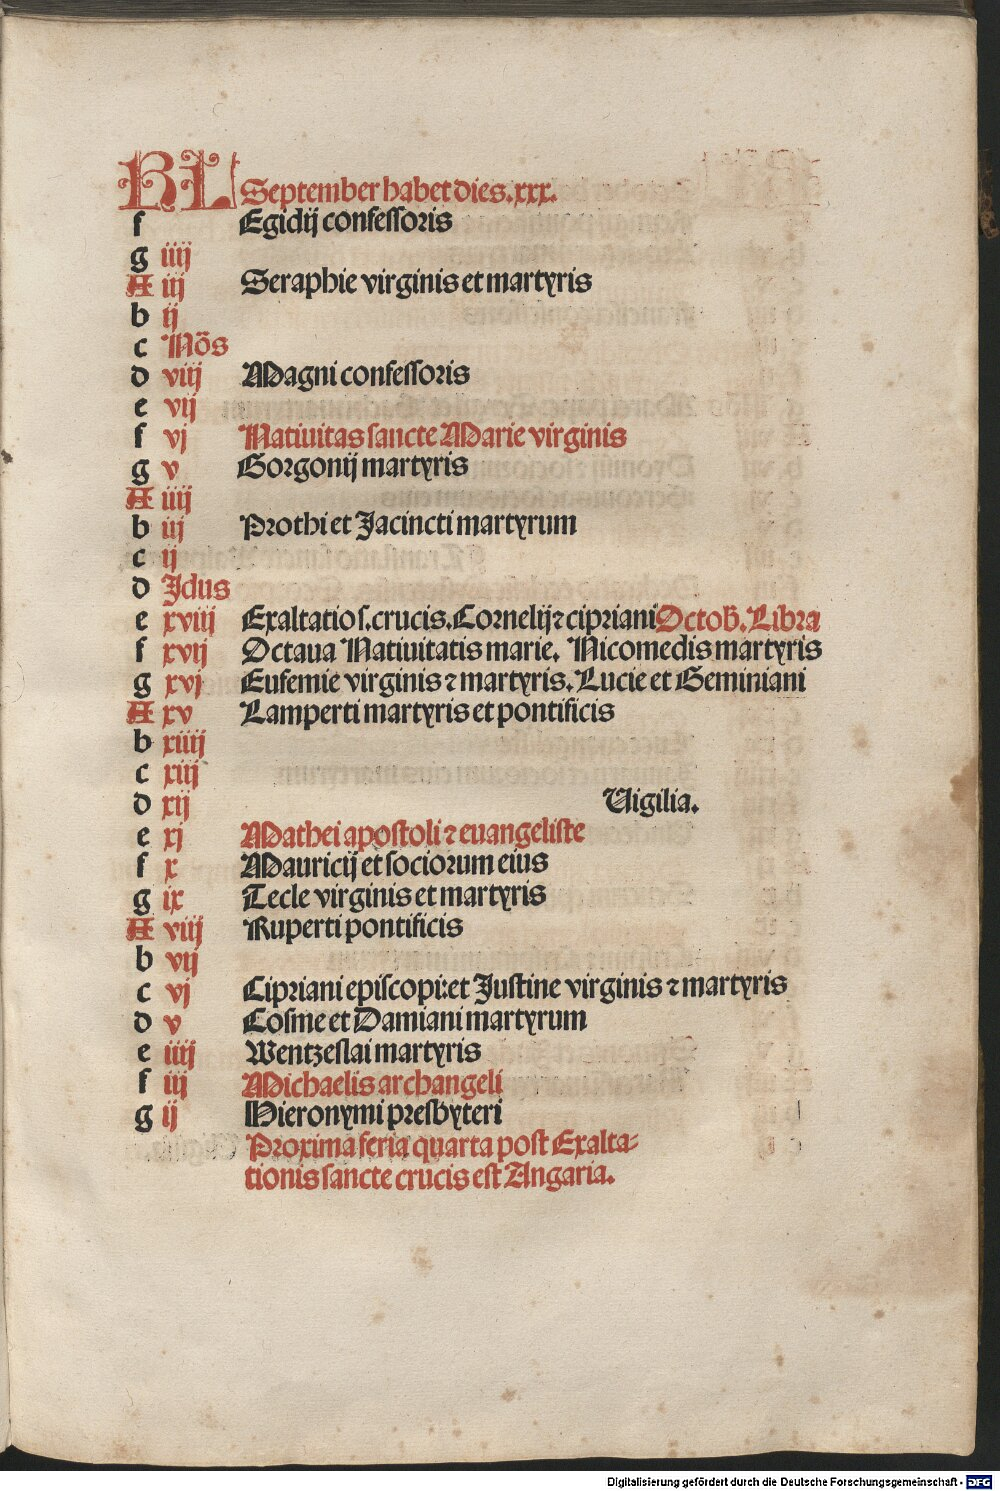 KL September habet dies.xxx.
f Egidij confessoris
g iiij
A iij Seraphie virginis et martyris
b ij
c Nōs
d viij Magni confessoris
e vij
f vj Natiuitas sancte Marie virginis
g v Gorgonij martyris
A iiij
b iij Prothi et Jacincti martyrum
c ij
d Jdus
e xviij Exaltatio s.crucis.Cornelij ⁊ cipriani Octob̄.Libra
f xvij Octaua Natiuitatis marie. Nicomedis martyris
g xvj Eufemie virginis ⁊ martyris.Lucie et Geminiani
A xv Lamperti martyris et pontificis
b xiiij
c xiij
d xij Uigilia.
e xj Mathei apostoli ⁊ euangeliste
f x Mauricij et sociorum eius
g ix Tecle virginis et martyris
A viij Ruperti pontificis
b vij
c vj Cipriani episcopi:et Justine virginis ⁊ martyris
d v Cosme et Damiani martyrum
e iiij Wentzeslai martyris
f iij Michaelis archangeli
g ij Hieronymi presbyteri
Proxima feria quarta post Exalta-
tionis sancte crucis est Angaria.
Digitalisierung gefördert durch die Deutsche Forschungsgemeinschaft - DFG